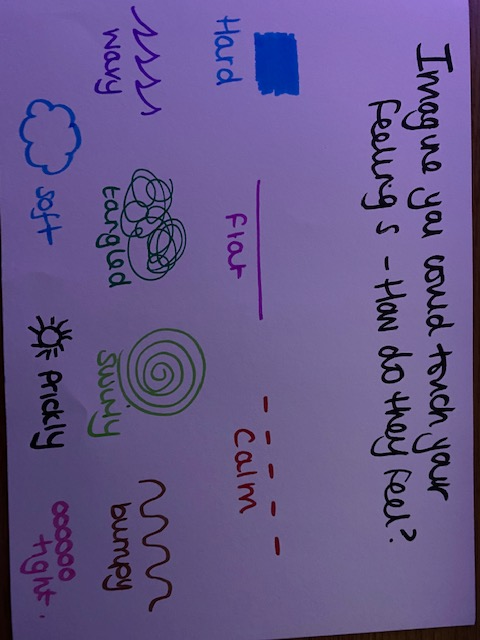 Imagine you could touch your
feelings - How do they feel?
Hard
flat
calm
wavy
tangled
swirly
bumpy
soft
Prickly
tight.